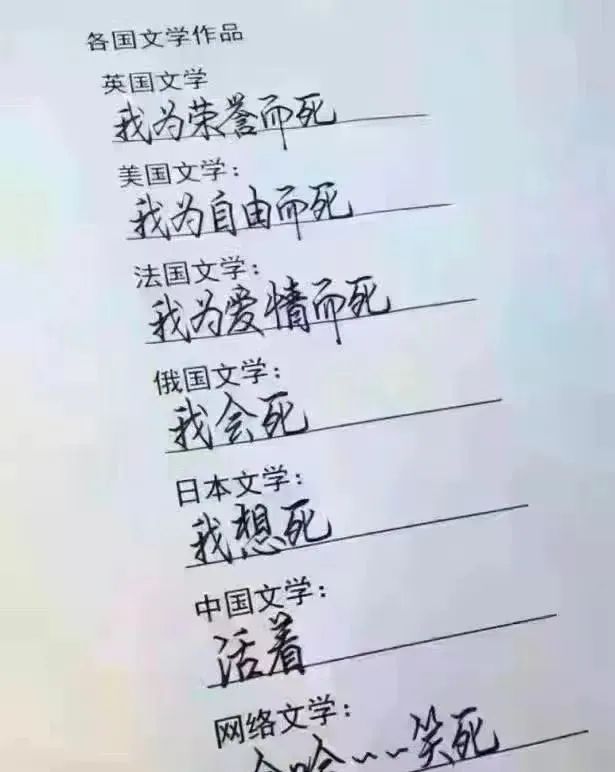 各国文学作品
英国文学
我为荣誉而死
美国文学:
我为自由而死
法国文学:
我为爱情而死
俄国文学:
我会死
日本文学:
我想死
中国文学:
活着
网络文学:
哈哈~~笑死